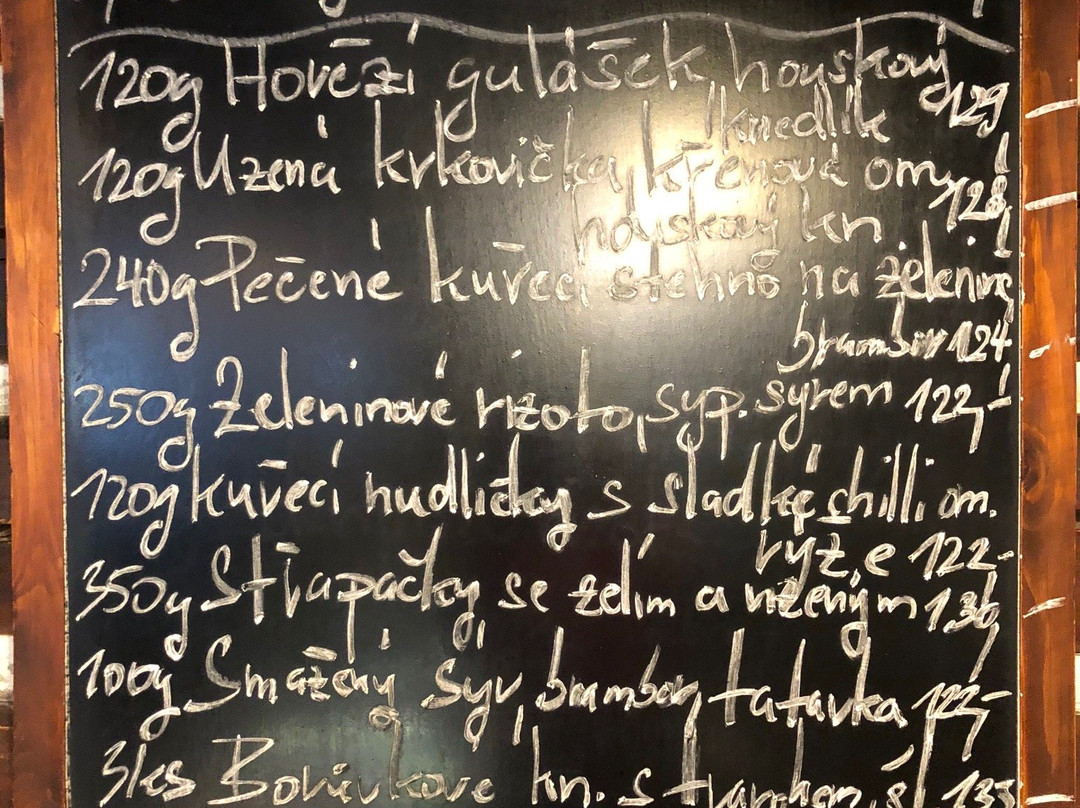 120g Hovězí gulášek, houskový
knedlík 129
120g Uzená krkovička, křenová om,
houskový kn. 128,-
240g Pečené kuřecí stehno na zelenině
brambor 124
250g Zeleninové rizoto, syp. sýrem 122,-
120g kuřecí nudličky s sladké chilli om.
rýže 122,-
350g Střapačky se zelím a uzeným 136,
100g Smažený sýr, brambory, tatarka 122,-
3/ks Borůvkové kn. s tvarohem, šl